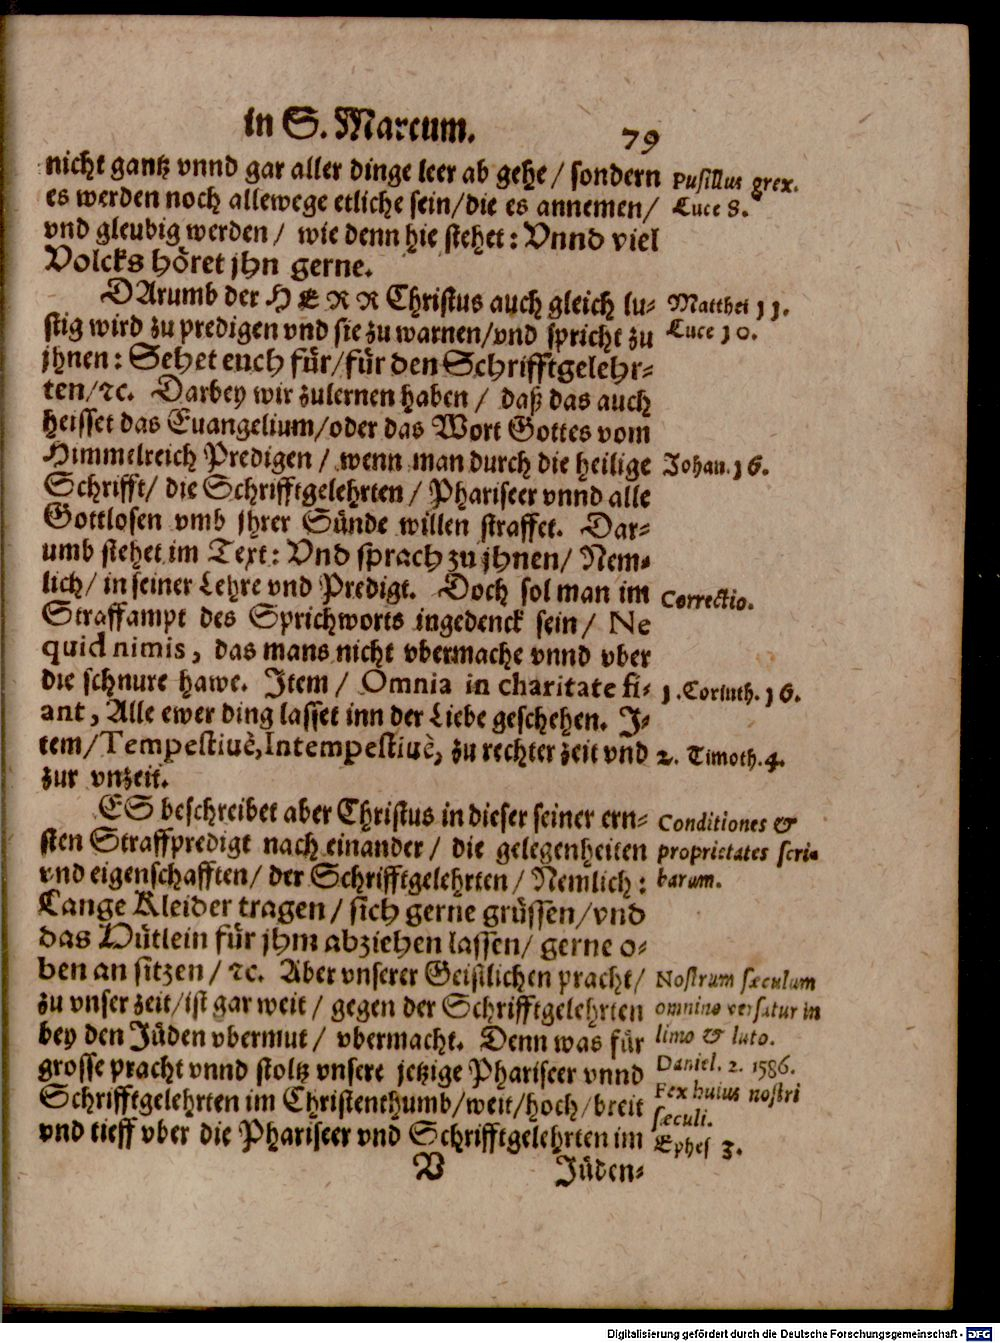 in S. Marcum. 79
nicht gantz vnnd gar aller dinge leer ab gehe / sondern
es werden noch allewege etliche sein/die es annemen/
vnd gleubig werden / wie denn hie stehet: Vnnd viel
Volcks höret jhn gerne.
DArumb der HERR Christus auch gleich lu-
stig wird zu predigen vnd sie zu warnen/vnd spricht zu
jhnen: Sehet euch für/für den Schrifftgelehr-
ten/ꝛc. Darbey wir zulernen haben / daß das auch
heisset das Euangelium/oder das Wort Gottes vom
Himmelreich Predigen / wenn man durch die heilige
Schrifft/ die Schrifftgelehrten / Phariseer vnnd alle
Gottlosen vmb jhrer Sünde willen straffet. Dar-
umb stehet im Text: Vnd sprach zu jhnen/ Nem-
lich/ in seiner Lehre vnd Predigt. Doch sol man im
Straffampt des Sprichworts ingedenck sein/ Ne
quid nimis, das mans nicht vbermache vnnd vber
die schnure hawe. Item / Omnia in charitate fi-
ant, Alle ewer ding lasset inn der Liebe geschehen. I-
tem/Tempestiuè, Intempestiuè, zu rechter zeit vnd
zur vnzeit.
ES beschreibet aber Christus in dieser seiner ern-
sten Straffpredigt nach einander / die gelegenheiten
vnd eigenschafften/ der Schrifftgelehrten / Nemlich:
Lange Kleider tragen / sich gerne grüssen/vnd
das Hütlein für jhm abziehen lassen/ gerne o-
ben an sitzen / ꝛc. Aber vnserer Geistlichen pracht/
zu vnser zeit/ist gar weit / gegen der Schrifftgelehrten
bey den Jüden vbermut / vbermacht. Denn was für
grosse pracht vnnd stoltz vnsere jetzige Phariseer vnnd
Schrifftgelehrten im Christenthumb/weit/hoch/breit
vnd tieff vber die Phariseer vnd Schrifftgelehrten im
V Jüden-
Pusillus grex.
Luce 8.
Matthei 11.
Luce 10.
Johan. 16.
Correctio.
1. Corinth. 16.
2. Timoth. 4.
Conditiones &
proprietates scri-
barum.
Nostrum sæculum
omnino versatur in
limo & luto.
Daniel. 2. 1586.
Fex huius nostri
sæculi.
Ephes 3.
Digitalisierung gefördert durch die Deutsche Forschungsgemeinschaft - DFG